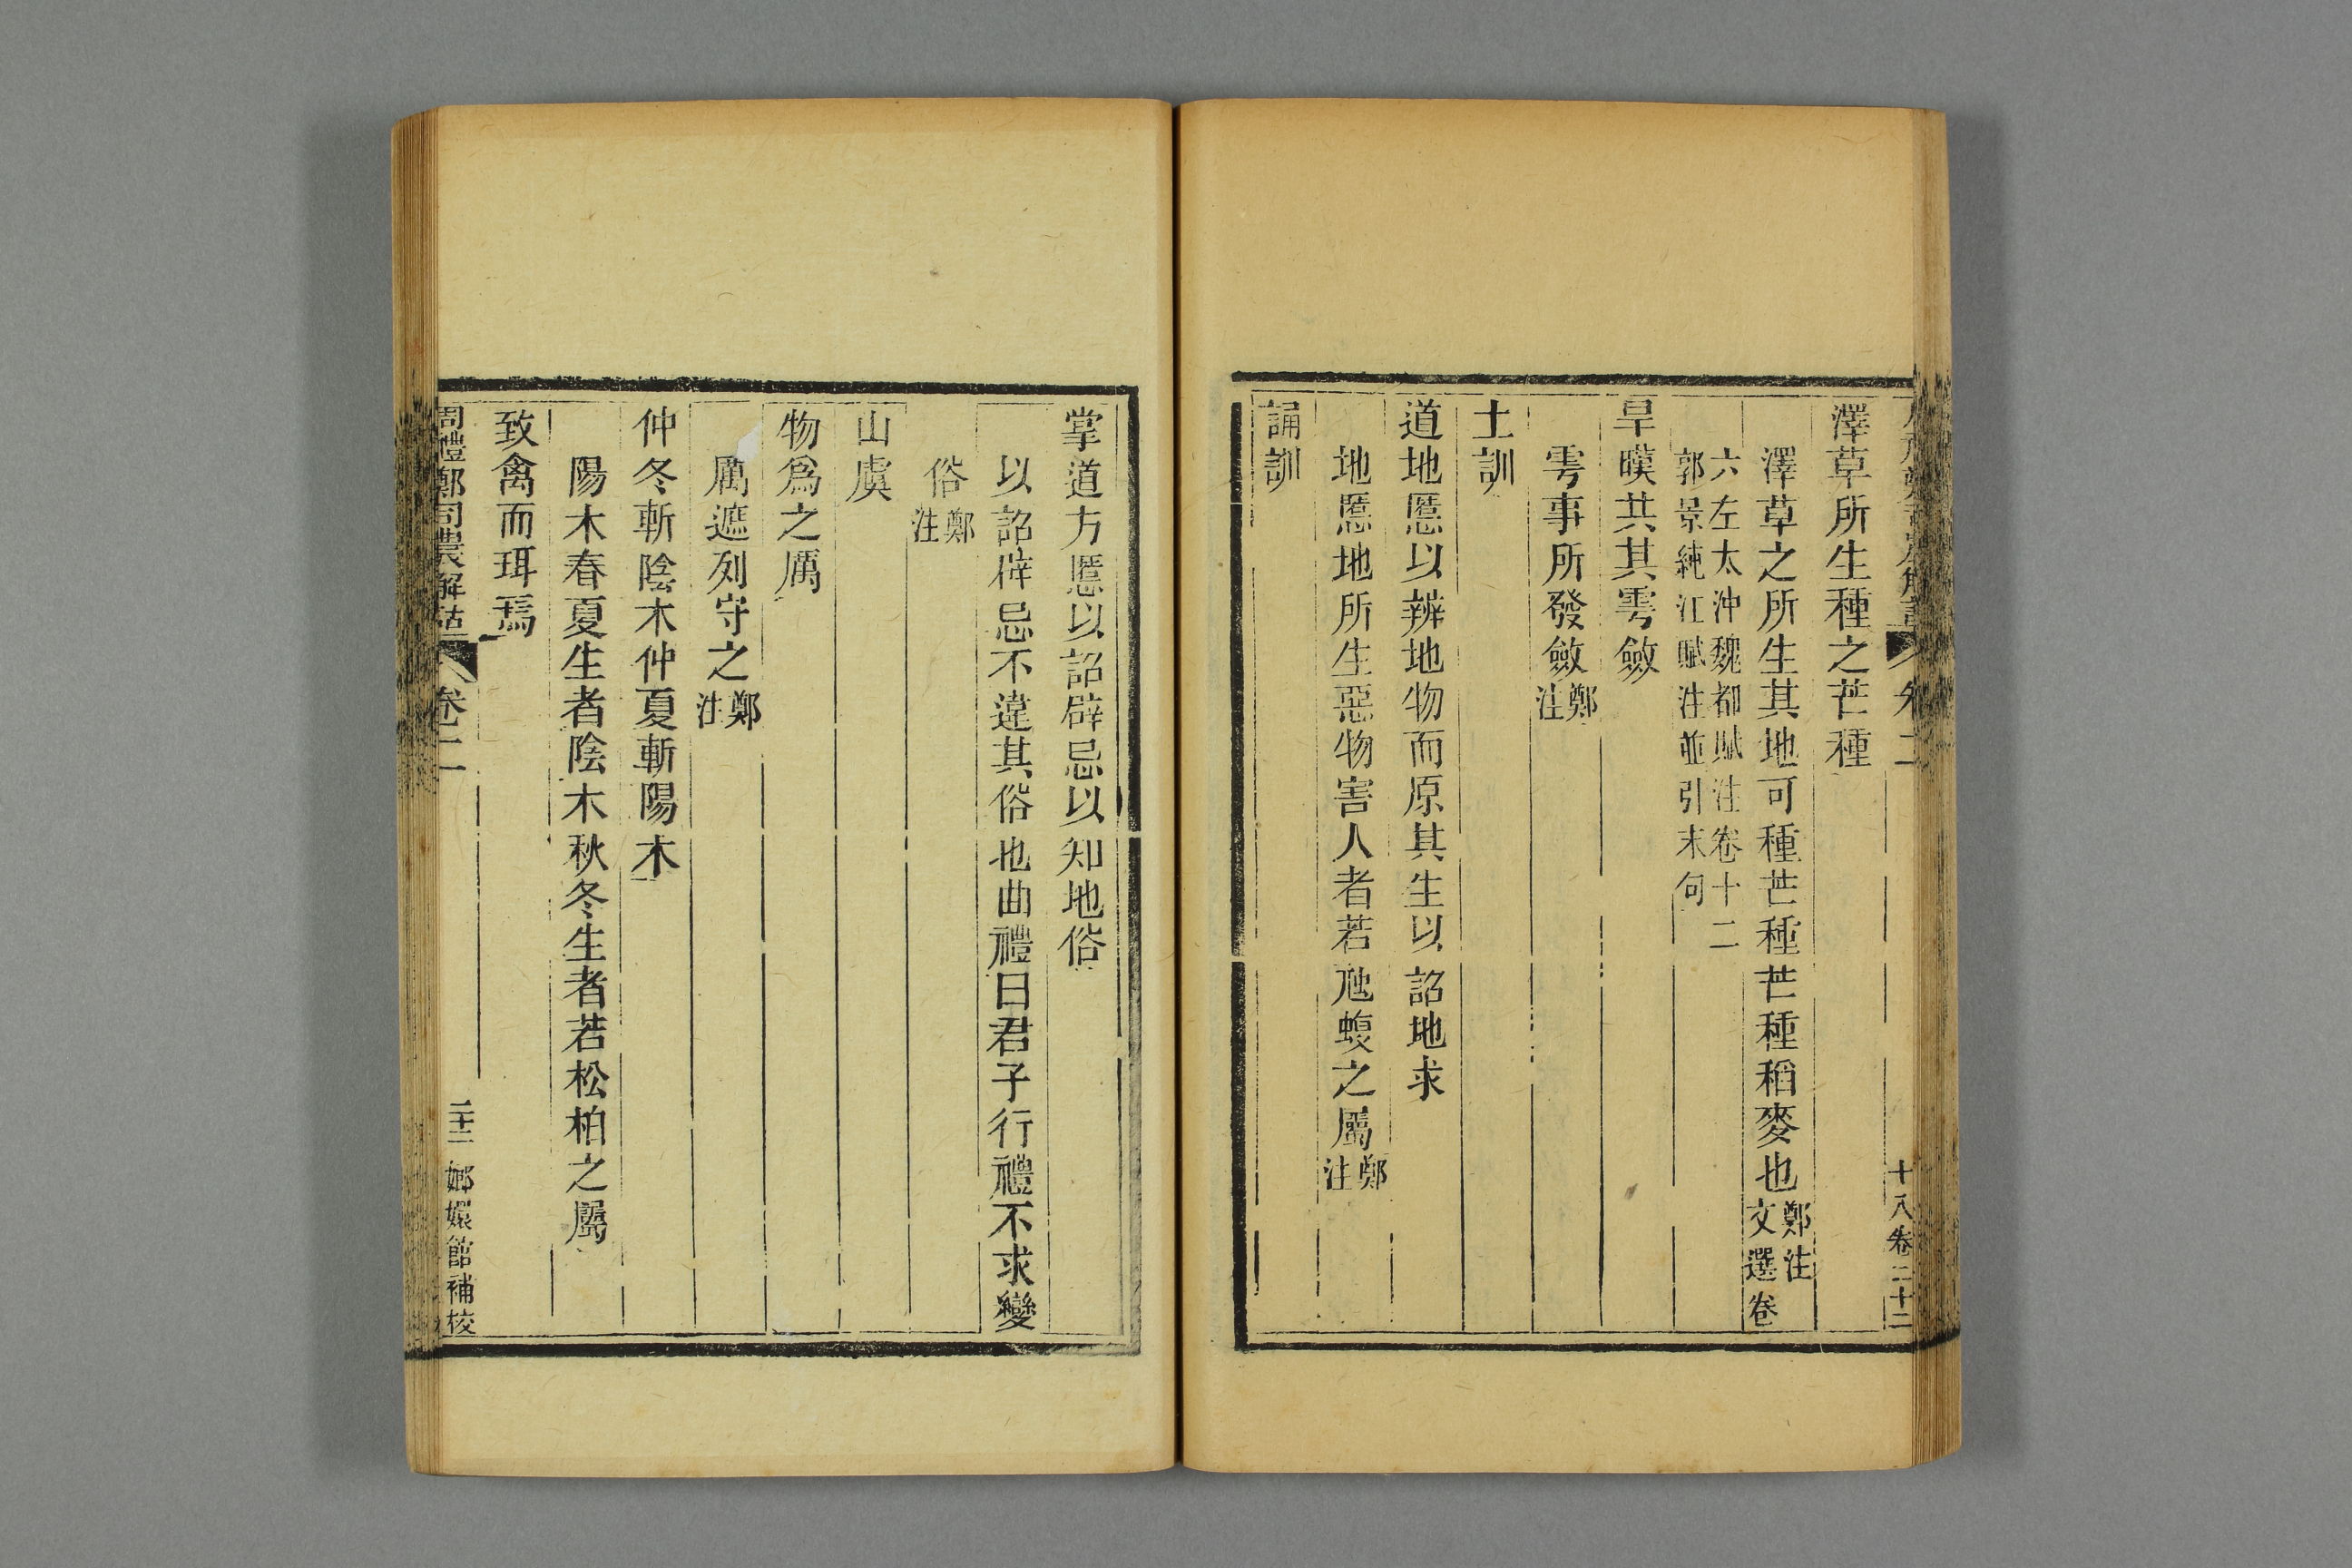 澤草所生種之芒種
澤草之所生其地可種芒種芒種稻麥也鄭注文選卷
六左太沖魏都賦注卷十二
郭景純江賦注並引末句
旱暵共其雩斂
雩事所發斂鄭注
土訓
道地慝以辨地物而原其生以詔地求
地慝地所生惡物害人者若虺蝮之屬鄭注
誦訓
掌道方慝以詔辟忌以知地俗
以詔辟忌不違其俗也曲禮曰君子行禮不求變
俗鄭注
山虞
物爲之厲
厲遮列守之鄭注
仲冬斬陰木仲夏斬陽木
陽木春夏生者陰木秋冬生者若松柏之屬
致禽而珥焉
周禮鄭司農解詁 卷二 二十二 嫏嬛館補校